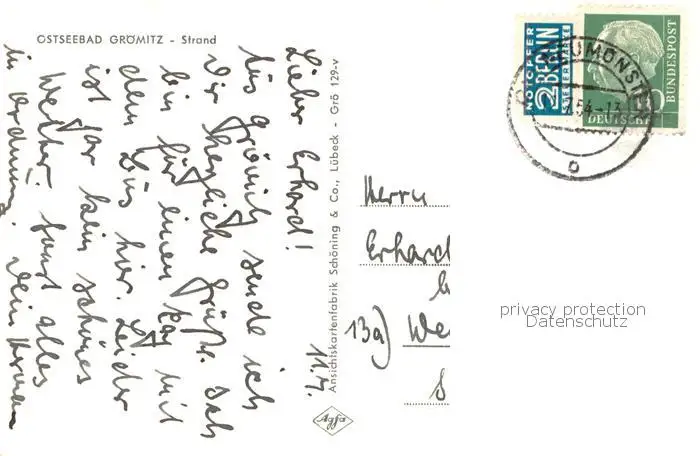 OSTSEEBAD GRÖMITZ - Strand
11.7.
Lieber Erhard!
Aus Grömitz sende ich
Dir herzliche Grüße. Ich
bin für einen Tag mit
dem Bus hier. Leider
ist gar kein schönes
Wetter. Sonst alles
in Ordnung. Dein
Ansichtskartenfabrik Schöning & Co., Lübeck - Grö 129-v
Agfa
NOTOPFER
2 BERLIN
STEUERMARKE
DEUTSCHE
BUNDESPOST
10
NEUMÜNSTER
54-13
b
Herrn
Erhard
13a) We
privacy protection
Datenschutz